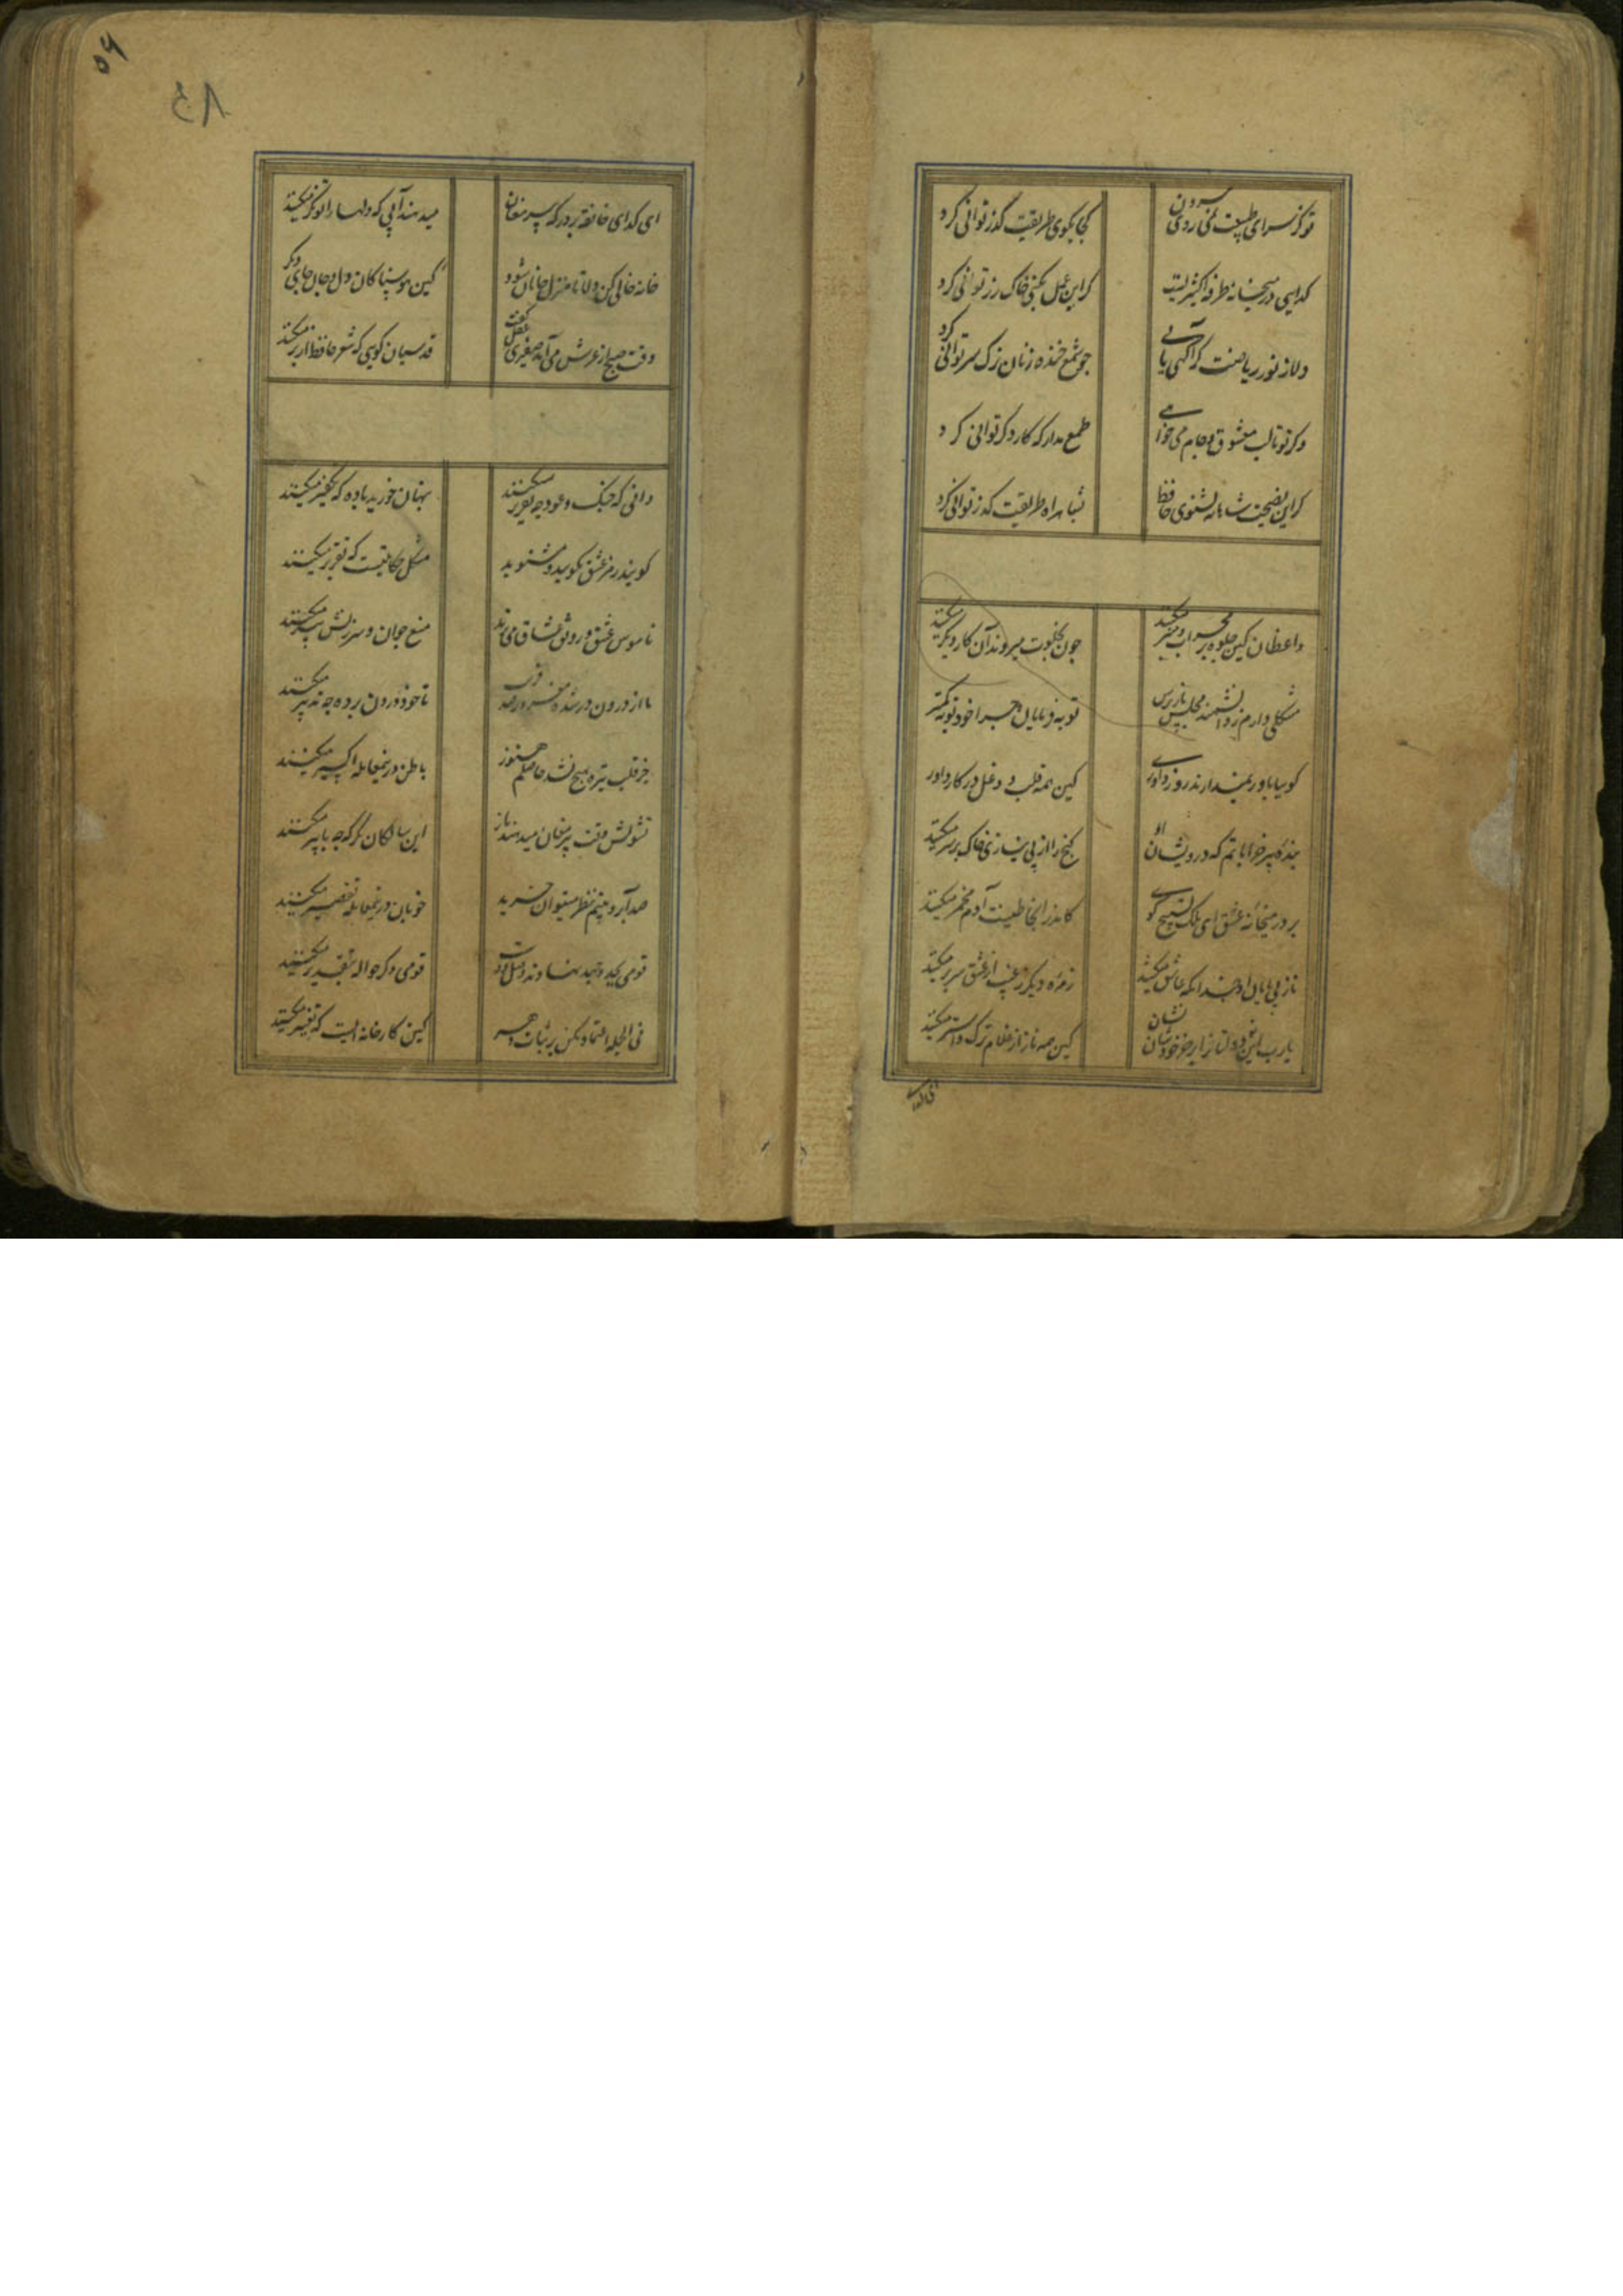 تو کز سرای طبیعت نمی روی بیرون
کجا بکوی طریقت گذر توانی کرد
گدایی در میخانه طرفه اکسیریست
گر این عمل بکنی خاک زر توانی کرد
دلا ز نور ریاضت گر آگهی یابی
چو شمع خنده زنان ترک سر توانی کرد
ولی تو تا لب معشوق و جام می خواهی
طمع مدار که کار دگر توانی کرد
گر این نصیحت شاهانه بشنوی حافظ
بشاهراه طریقت گذر توانی کرد
واعظان کین جلوه بر محراب و منبر میکنند
چون بخلوت میروند آن کار دیگر میکنند
مشکلی دارم ز دانشمند مجلس باز پرس
توبه فرمایان چرا خود توبه کمتر
گوییا باور نمیدارند روز داوری
کین همه قلب و دغل در کار داور
بنده پیر خراباتم که درویشان او
گنج را از بی نیازی خاک بر سر میکنند
بر در میخانه عشق ای ملک تسبیح گوی
کاندر انجا طینت آدم مخمر میکنند
زمره دیگر ز غیب از عشق سر بر میکنند
یارب این نو دولتانرا بر خر خودشان نشان
کین همه ناز از غلام ترک و استر میکنند
ای گدای
۵۶
ای گدای خانقه بر در که پیر مغان
میدهند آبی که دلها را توانگر میکنند
خانه خالی کن دلا تا منزل جانان شود
کین هوسناکان دل و جان جای دگر
وقت صبح از عرش می آمد عقل گفت
قدسیان گویی که شعر حافظ از بر میکنند
دانی که چنگ و عود چه تقریر میکنند
پنهان خورید باده که تکفیر میکنند
گویند رمز عشق مگویید و مشنوید
مشکل حکایتیست که تقریر میکنند
ناموس عشق و رونق عشاق می برند
منع جوان و سرزنش پیر میکنند
ما از درون در شده مغرور صد فریب
تا خود درون پرده چه تدبیر میکنند
جز قلب تیره هیچ نشد حاصلم هنوز
باطن درینمعامله اکسیر میکنند
تشویش وقت پیر مغان میدهند باز
این سالکان نگر که چه با پیر میکنند
صد آبرو بنیم نظر میتوان خرید
خوبان درینمعامله تقصیر میکنند
قومی بجد و جهد نهادند وصل دوست
قومی دگر حواله بتقدیر میکنند
فی الجمله اعتماد مکن بر ثبات دهر
کین کارخانه ایست که تغییر میکنند